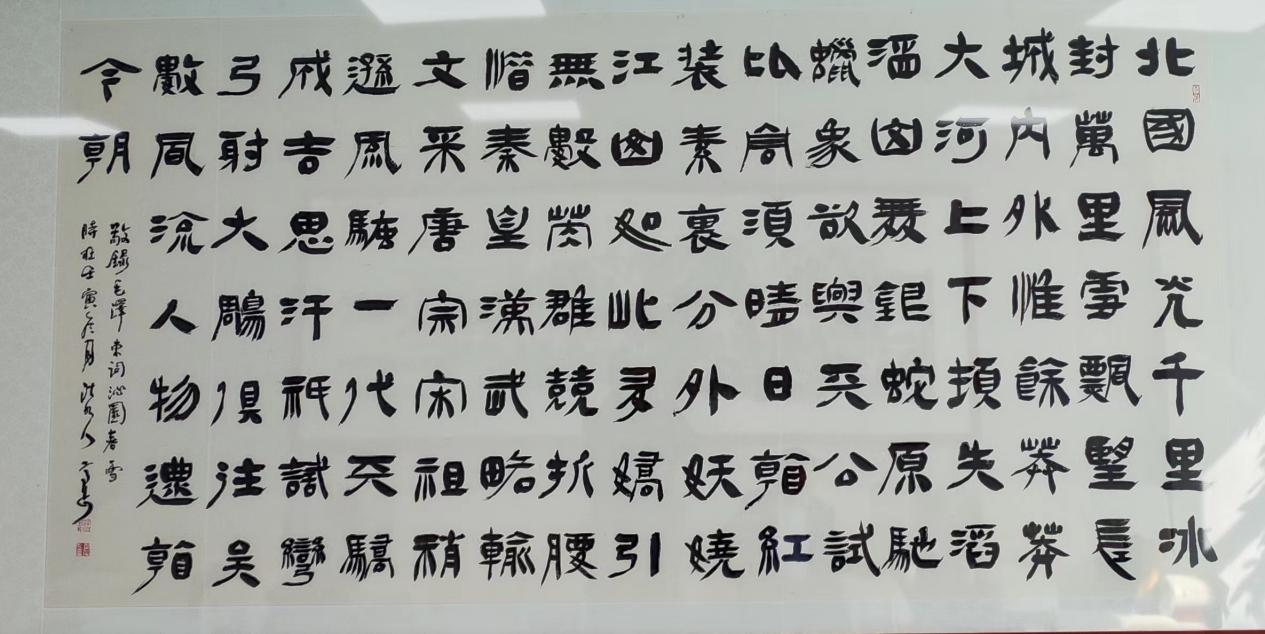 北國風光千里冰
封萬里雪飄望長
城内外惟餘莽莽
大河上下頓失滔
滔山舞銀蛇原馳
蠟象欲與天公試
比高須晴日看紅
装素裹分外妖嬈
江山如此多嬌引
無數英雄競折腰
惜秦皇漢武略輸
文采唐宗宋祖稍
遜風騷一代天驕
成吉思汗祇識彎
弓射大鵰俱往矣
數風流人物還看
今朝
敬録毛澤東詞沁園春雪
時在壬寅冬月